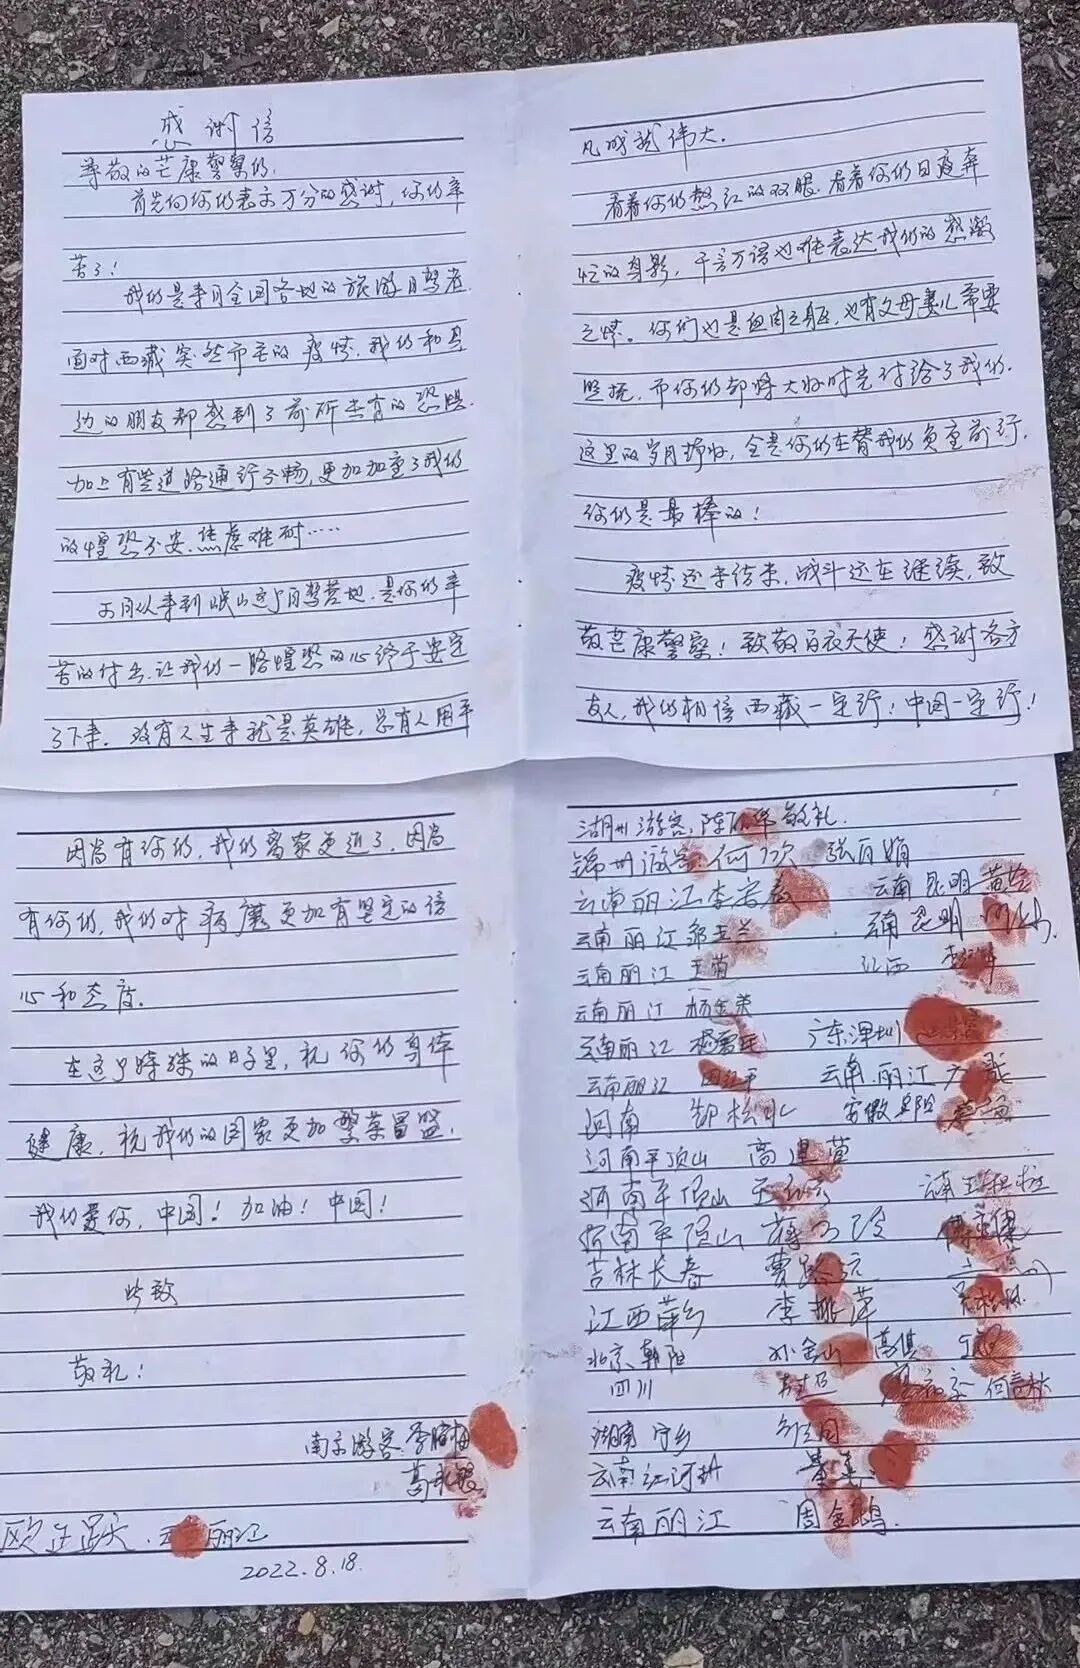 感谢信
尊敬的芒康警察们,
首先向你们表示万分的感谢，你们辛
苦了！
我们是来自全国各地的旅游自驾者.
面对西藏突然而至的疫情.我们和身
边的朋友都感到了前所未有的恐惧.
加上有些道路通行不畅,更加加重了我们
的惶恐不安.焦虑难耐……
可自从来到岷山这个自驾营地.是你们辛
苦的付出.让我们一路惶恐的心终于安定
了下来.没有人生来就是英雄,总有人用平
凡成就伟大.
看着你们熬红的双眼.看着你们日夜奔
忙的身影，千言万语也难表达我们的感激
之情。你们也是血肉之躯,也有父母妻儿需要
照抚,而你们却将大好时光付给了我们.
这里的岁月静好，全是你们在替我们负重前行.
你们是最棒的!
疫情还未结束，战斗还在继续，致
敬芒康警察！致敬白衣天使！感谢各方
友人,我们相信西藏一定行！中国一定行！
因为有你们,我们离家更近了.因为
有你们,我们对病魔更加有坚定的信
心和态度.
在这个特殊的日子里，祝你们身体
健康，祝我们的国家更加繁荣昌盛.
我们爱你,中国！加油！中国！
此致
敬礼！
南京游客
丽江
2022.8.18.
湖州游客 敬礼.
锦州游客 何欣 张丽娟
云南丽江 云南昆明
云南丽江 云南昆明
云南丽江 王菊 江西
云南丽江 杨金美
云南丽江 广东深圳
云南丽江 云南丽江
河南 郜松水 安徽
河南平顶山 高建莹
河南平顶山
河南平顶山
吉林长春 曹
江西萍乡 李
北京朝阳 孙金山 高琪
四川
湖南宁乡
云南红河州
云南丽江 周金鹏.